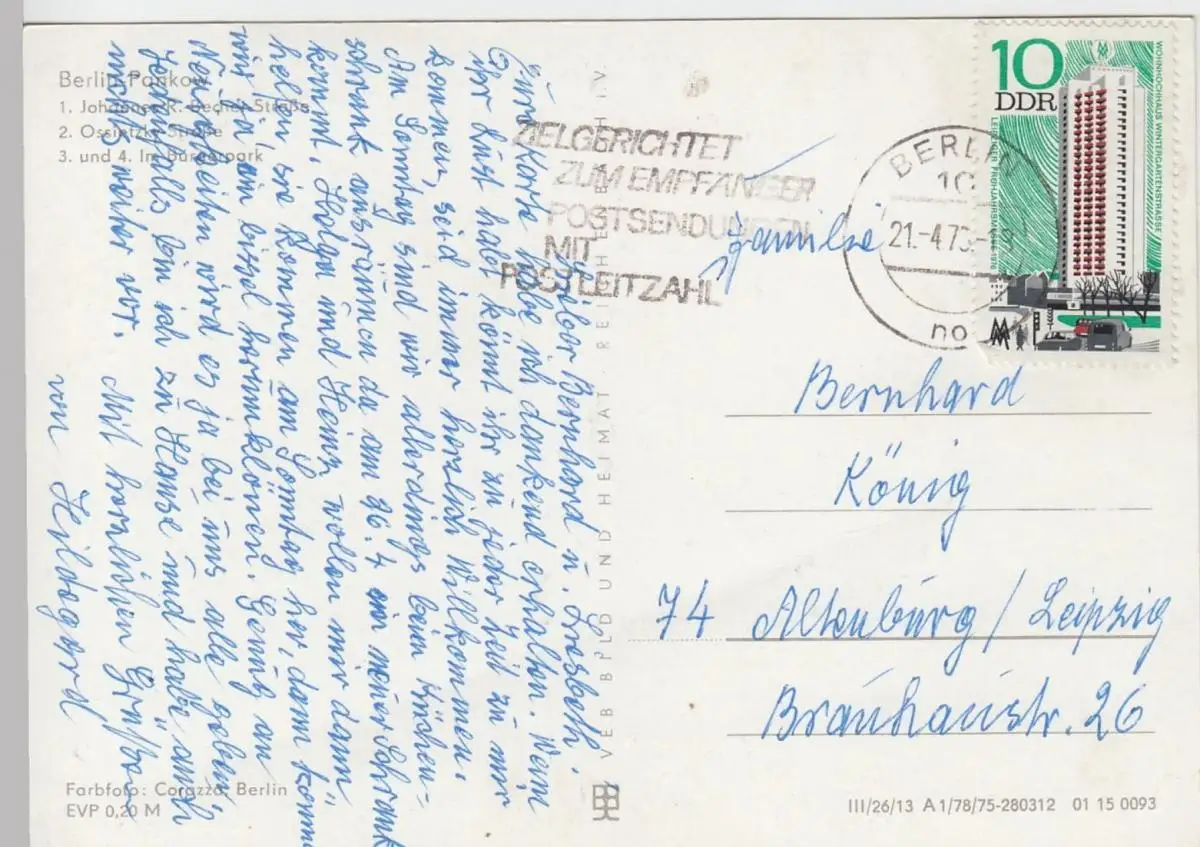 Berlin-Pankow
1. Johannes-R.-Becher-Straße
2. Ossietzky-Straße
3. und 4. Im Bürgerpark
Lieber Bernhard u. Liesbeth.
Eure Karte habe ich dankend erhalten. Wenn
Ihr Lust habt könnt ihr zu jeder Zeit zu mir
kommen, seid immer herzlich Willkommen.
Am Sonntag sind wir allerdings beim Küchen-
schrank ausräumen da am 26.4 ein neuer Schrank
kommt. Holga und Heinz wollen mir dann
helfen, sie kommen am Sonntag her, dann können
wir ja ein bissel herumklönen. Genug an
Neuigkeiten wird es ja bei uns alle geben,
Jedenfalls bin ich zu Hause und habe auch
nichts weiter vor.
Mit herzlichen Grüßen
von Hildegard
Farbfoto: Corazza, Berlin
EVP 0,20 M
VEB BILD UND HEIMAT REICHENBACH I. V.
ZIELGERICHTET
ZUM EMPFÄNGER
POSTSENDUNGEN
MIT
POSTLEITZAHL
BERLIN
10
21.-4.7
10
DDR
LEIPZIGER FRÜHJAHRSMESSE
WOHNHOCHHAUS WINTERGARTENSTRASSE
MM
Familie
Bernhard
König
74 Altenburg / Leipzig
Brauhausstr. 26
III/26/13 A 1/78/75-280312 01 15 0093